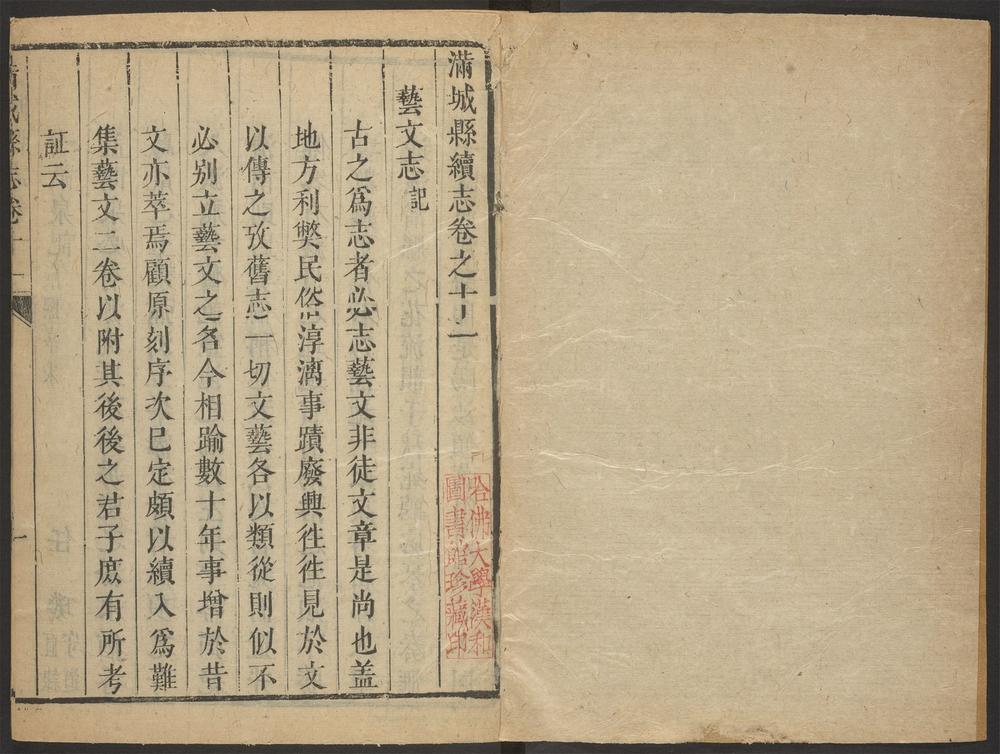 滿城縣續志卷之十二
藝文志 記
古之爲志者必志藝文非徒文章是尚也蓋
地方利獘民俗淳漓事蹟廢興徃徃見於文
以傳之攷舊志一切文藝各以類從則似不
必別立藝文之名今相踰數十年事增於昔
文亦萃焉顧原刻序次已定頗以續入爲難
集藝文二卷以附其後後之君子庶有所考
証云
滿城縣志卷十二
一
哈佛大學漢和
圖書館珍藏印